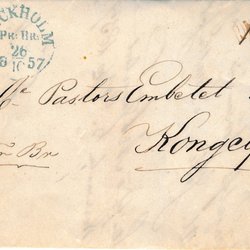 CKHOLM
Pr: Br:
26
10 57
Pastors Embetet
Kongel
Br